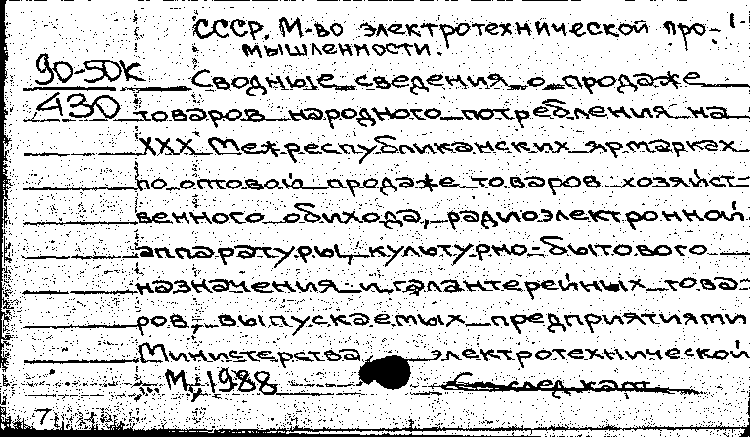 СССР. М-во электротехнической про- 1-
мышленности.
90-50К Сводные сведения о продаже
430 товаров народного потребления на
XXX Межреспубликанских ярмарках
по оптовой продаже товаров хозяйст-
венного обихода, радиоэлектронной
аппаратуры, культурно-бытового
назначения и галантерейных това-
ров, выпускаемых предприятиями
Министерства электротехнической
... М., 1988 См. след. карт.
7